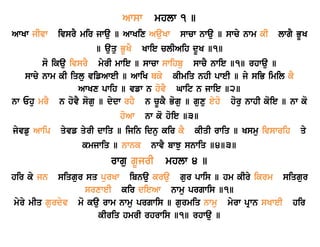 ਆਸਾ ਮਹਲਾ ੧ ॥
ਆਖਾ ਜੀਵਾ ਵਿਸਰੈ ਮਰਿ ਜਾਉ ॥ ਆਖਣਿ ਅਉਖਾ ਸਾਚਾ ਨਾਉ ॥ ਸਾਚੇ ਨਾਮ ਕੀ ਲਾਗੈ ਭੂਖ
॥ ਉਤੁ ਭੂਖੈ ਖਾਇ ਚਲੀਅਹਿ ਦੂਖ ॥੧॥
ਸੋ ਕਿਉ ਵਿਸਰੈ ਮੇਰੀ ਮਾਇ ॥ ਸਾਚਾ ਸਾਹਿਬੁ ਸਾਚੈ ਨਾਇ ॥੧॥ ਰਹਾਉ ॥
ਸਾਚੇ ਨਾਮ ਕੀ ਤਿਲੁ ਵਡਿਆਈ ॥ ਆਖਿ ਥਕੇ ਕੀਮਤਿ ਨਹੀ ਪਾਈ ॥ ਜੇ ਸਭਿ ਮਿਲਿ ਕੈ
ਆਖਣ ਪਾਹਿ ॥ ਵਡਾ ਨ ਹੋਵੈ ਘਾਟਿ ਨ ਜਾਇ ॥੨॥
ਨਾ ਓਹੁ ਮਰੈ ਨ ਹੋਵੈ ਸੋਗੁ ॥ ਦੇਦਾ ਰਹੈ ਨ ਚੂਕੈ ਭੋਗੁ ॥ ਗੁਣੁ ਏਹੋ ਹੋਰੁ ਨਾਹੀ ਕੋਇ ॥ ਨਾ ਕੋ
ਹੋਆ ਨਾ ਕੋ ਹੋਇ ॥੩॥
ਜੇਵਡੁ ਆਪਿ ਤੇਵਡ ਤੇਰੀ ਦਾਤਿ ॥ ਜਿਨਿ ਦਿਨੁ ਕਰਿ ਕੈ ਕੀਤੀ ਰਾਤਿ ॥ ਖਸਮੁ ਵਿਸਾਰਹਿ ਤੇ
ਕਮਜਾਤਿ ॥ ਨਾਨਕ ਨਾਵੈ ਬਾਝੁ ਸਨਾਤਿ ॥੪॥੩॥
ਰਾਗੁ ਗੂਜਰੀ ਮਹਲਾ ੪ ॥
ਹਰਿ ਕੇ ਜਨ ਸਤਿਗੁਰ ਸਤ ਪੁਰਖਾ ਬਿਨਉ ਕਰਉ ਗੁਰ ਪਾਸਿ ॥ ਹਮ ਕੀਰੇ ਕਿਰਮ ਸਤਿਗੁਰ
ਸਰਣਾਈ ਕਰਿ ਦਇਆ ਨਾਮੁ ਪਰਗਾਸਿ ॥੧॥
ਮੇਰੇ ਮੀਤ ਗੁਰਦੇਵ ਮੋ ਕਉ ਰਾਮ ਨਾਮੁ ਪਰਗਾਸਿ ॥ ਗੁਰਮਤਿ ਨਾਮੁ ਮੇਰਾ ਪ੍ਰਾਨ ਸਖਾਈ ਹਰਿ
ਕੀਰਤਿ ਹਮਰੀ ਰਹਰਾਸਿ ॥੧॥ ਰਹਾਉ ॥